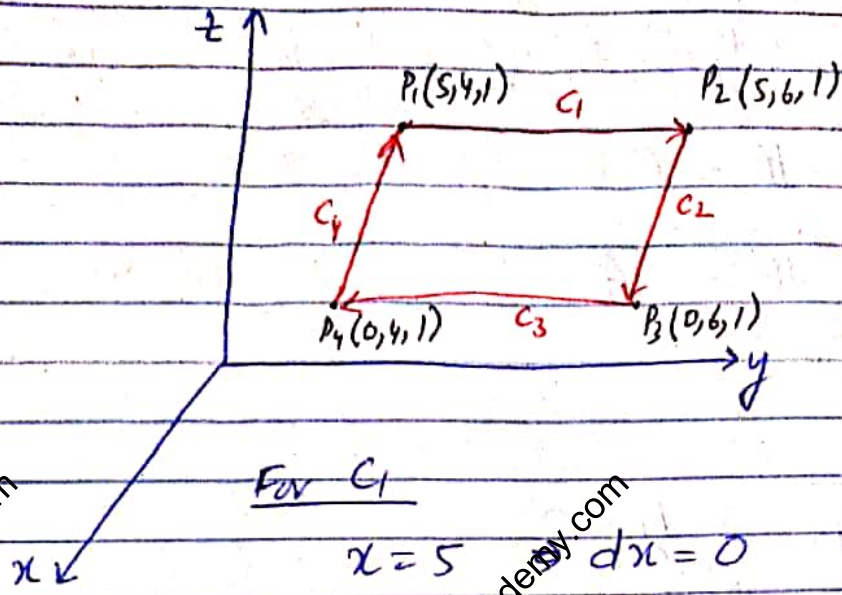 z
P₁(5,4,1) C₁ P₂(5,6,1)
C₄ C₂
P₄(0,4,1) C₃ P₃(0,6,1)
y
For C₁
x = 5 dx = 0
x
demy.com